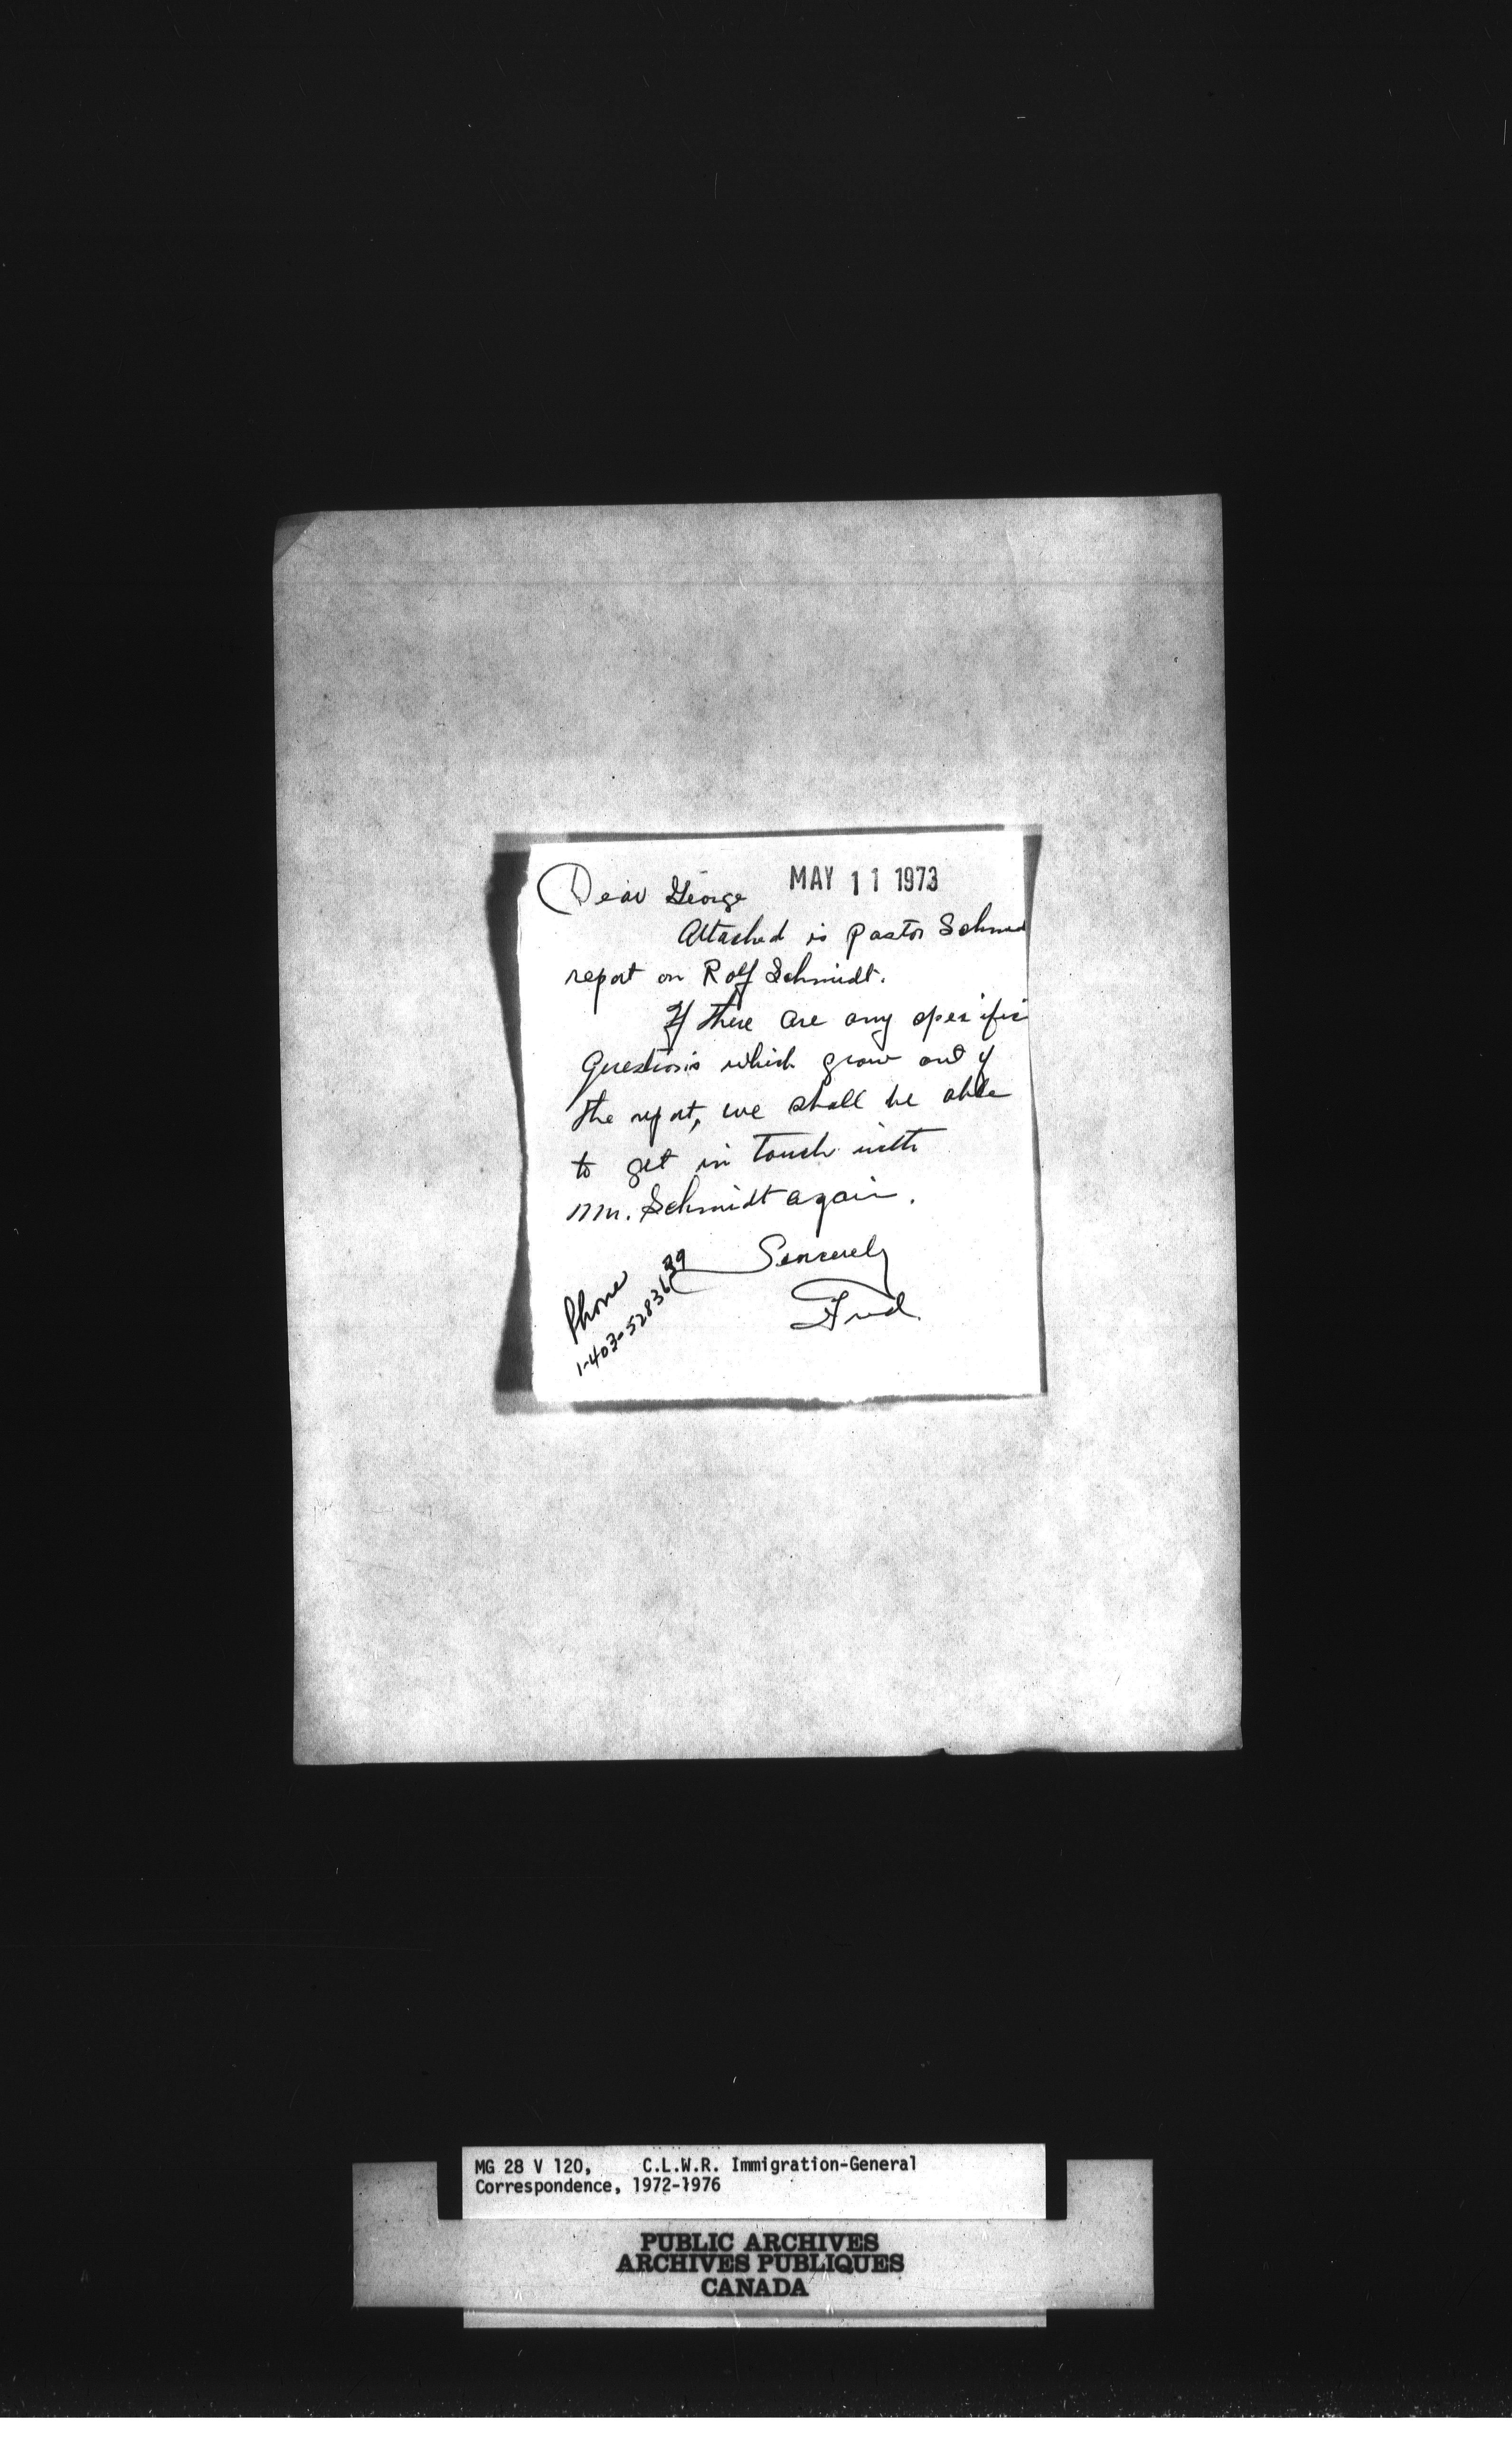 Dear George MAY 11 1973
Attached is Pastor Schmid
report on Rolf Schmidt.
If there are any specific
Questions which grow out of
the report, we shall be able
to get in touch with
Mr. Schmidt again.
Sincerely
Fred
Phone
1-403-5283639
MG 28 V 120, C.L.W.R. Immigration-General
Correspondence, 1972-1976
PUBLIC ARCHIVES
ARCHIVES PUBLIQUES
CANADA